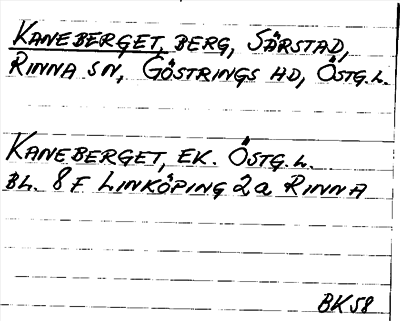 KANEBERGET, BERG, SÖRSTAD,
RINNA SN, GÖSTRINGS HD, ÖSTG.L.
KANEBERGET, EK. ÖSTG.L.
BL. 8F LINKÖPING 2a RINNA
BK58